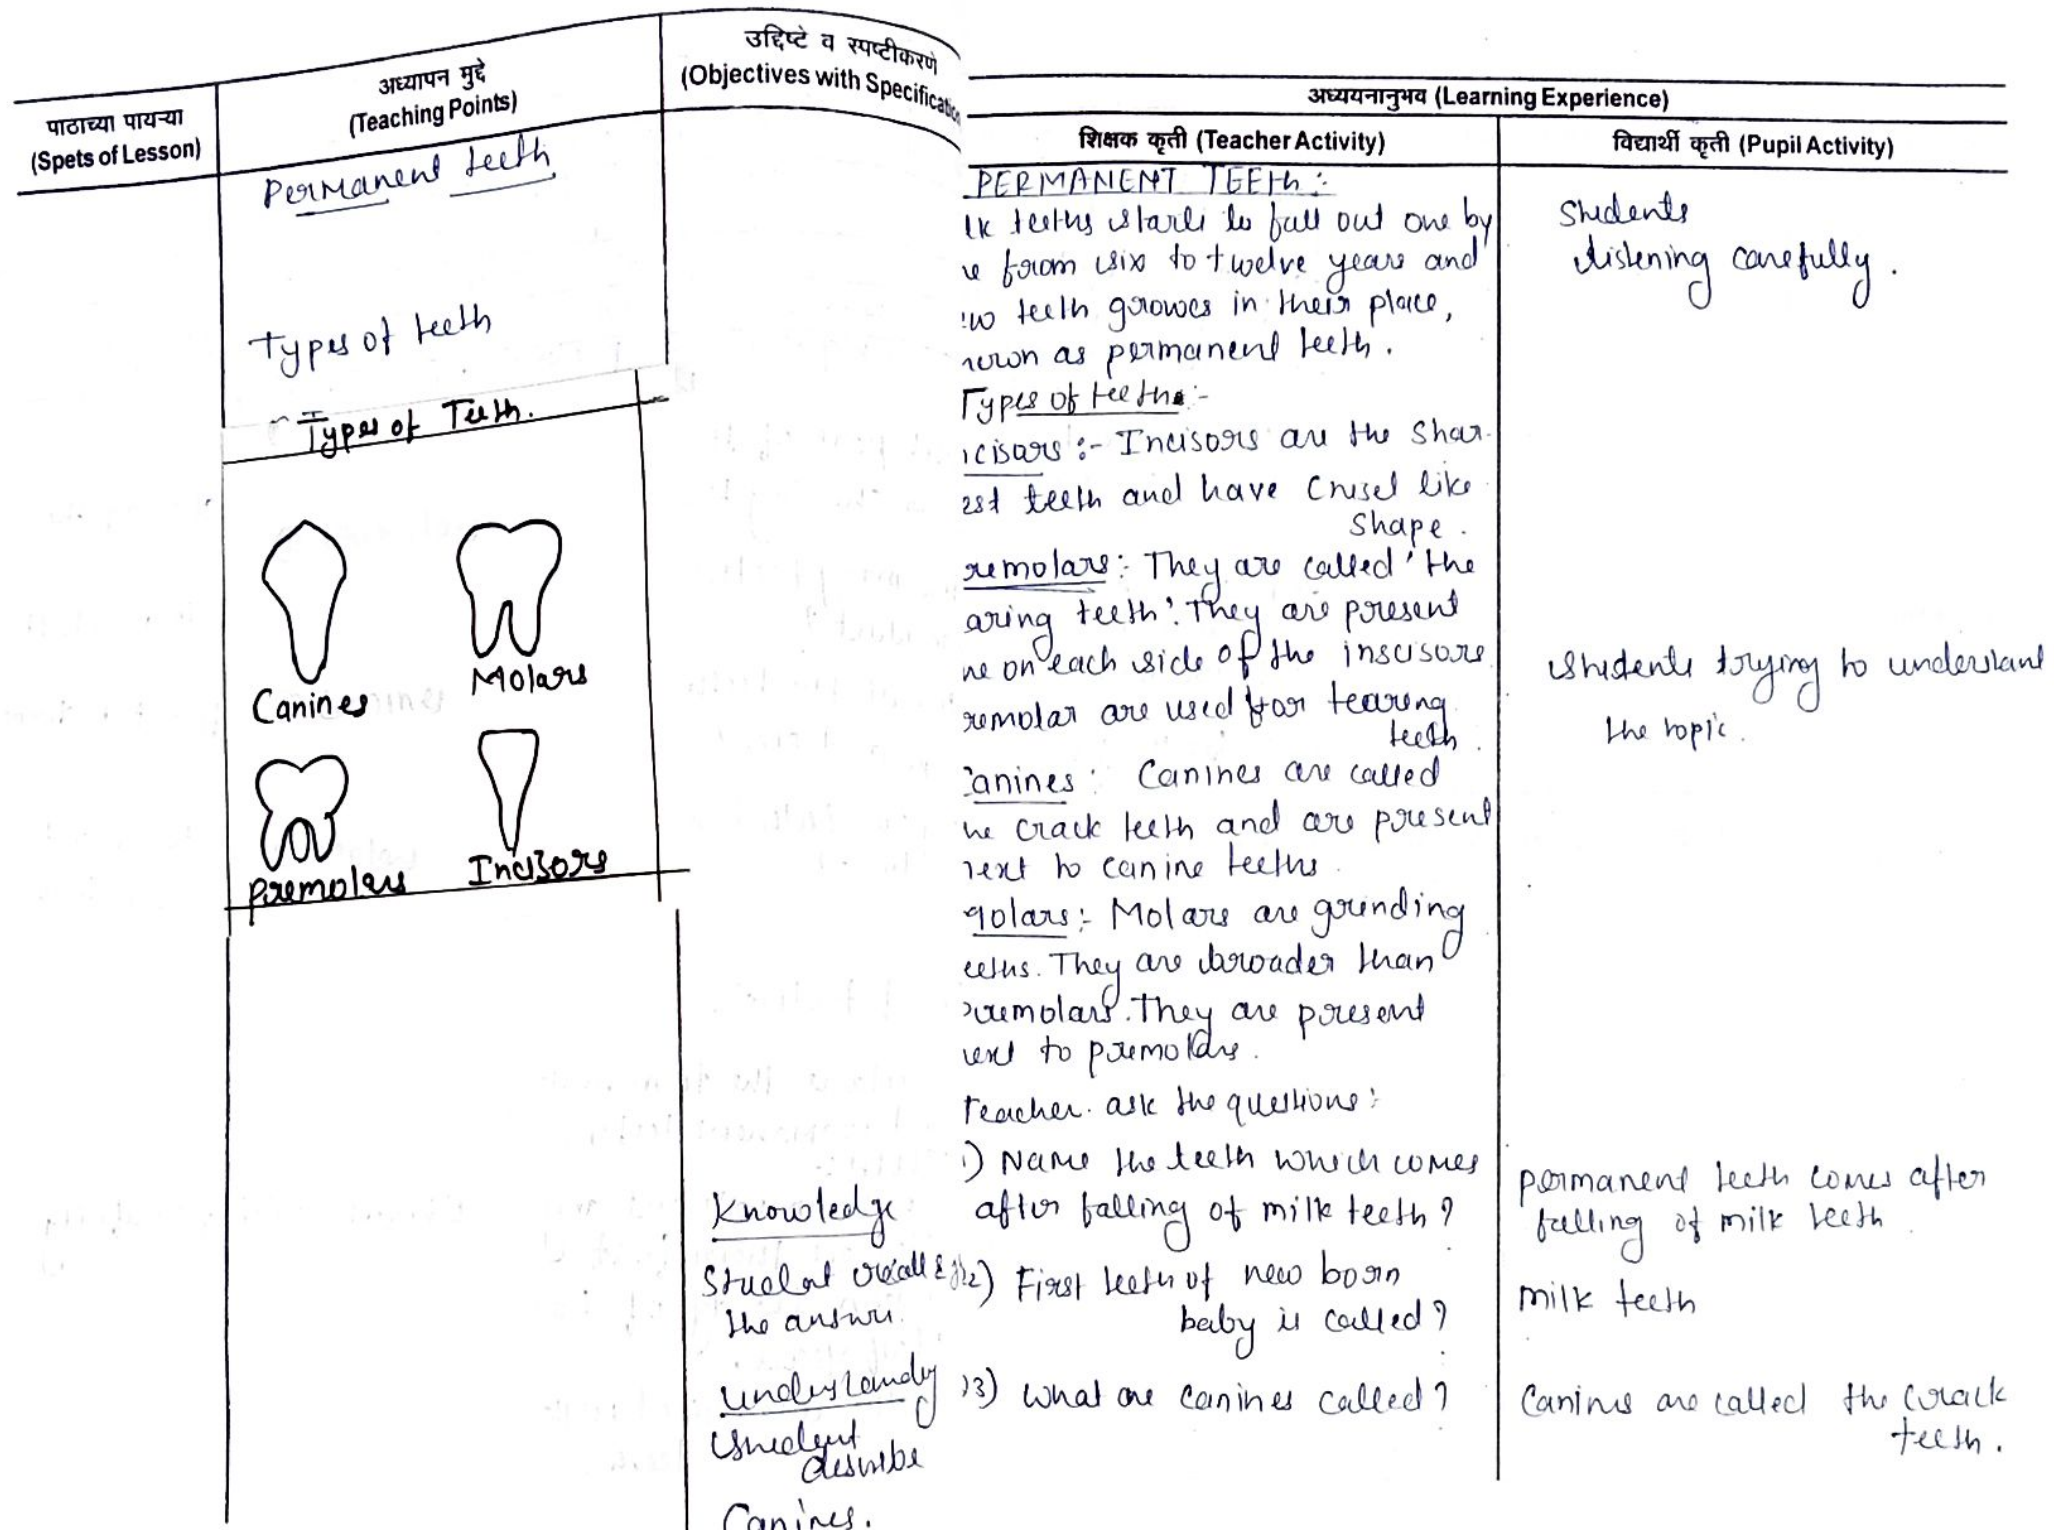 पाठाच्या पायऱ्या
(Spets of Lesson)
अध्यापन मुद्दे
(Teaching Points)
उद्दिष्टे व स्पष्टीकरणे
(Objectives with Specification
अध्ययनानुभव (Learning Experience)
शिक्षक कृती (Teacher Activity)
विद्यार्थी कृती (Pupil Activity)
Permanent teeth
Types of teeth
Types of Teeth.
Canines
Molars
Premolars
Incisors
Knowledge
Student recall &
the answer
Understandg
Student
describe
Canines.
PERMANENT TEEth :-
lk teeths starts to fall out one by
e from six to twelve years and
w teeth growes in their place,
nown as permanent teeth.
Types of teeth :-
ncisors :- Incisors are the Shar-
est teeth and have Chisel like
Shape.
remolars :- They are called 'the
aring teeth'. They are present
ne on each side of the inscisors
remolar are used for tearing
teeth.
Canines : Canines are called
he crack teeth and are present
next to canine teeths.
Molars :- Molars are grinding
eeths. They are broader than
premolars. They are present
next to premolars.
Teacher ask the questions :
1) Name the teeth which comes
after falling of milk teeth ?
2) First teeth of new born
baby is called ?
3) What are canines called ?
Students
listening carefully.
Students trying to understand
the topic.
permanent teeth comes after
falling of milk teeth
milk teeth
Canines are called the crack
teeth.